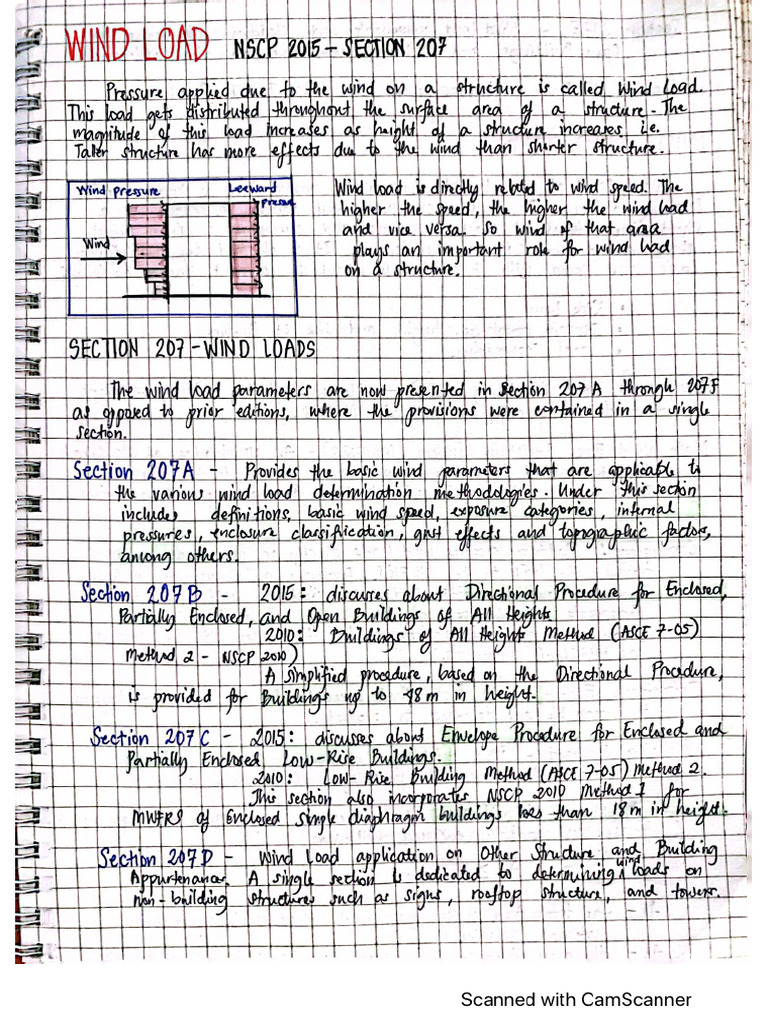 WIND LOAD NSCP 2015 - SECTION 207
Pressure applied due to the wind on a structure is called Wind Load.
This load gets distributed throughout the surface area of a structure. The
magnitude of this load increases as height of a structure increases, i.e.
Taler structure has more effects due to the wind than shorter structure.
Wind Pressure
Leeward
Pressu
Wind
Wind load is directly related to wind speed. The
higher the speed, the higher the wind load
and vice versa. So wind of that area
plays an important role for wind load
on a structure.
SECTION 207 - WIND LOADS
The wind load parameters are now presented in Section 207A through 207F
as opposed to prior editions, where the provisions were contained in a single
section.
Section 207A - Provides the basic wind parameters that are applicable to
the various wind load determination methodologies. Under this section
includes definitions, basic wind speed, exposure categories, internal
pressures, enclosure classification, gust effects and topographic factors,
among others.
Section 207B - 2015: discusses about Directional Procedure for Enclosed,
Partially Enclosed, and Open Buildings of All Heights
2010: Buildings of All Heights Method (ASCE 7-05)
Method 2 - NSCP 2010)
A simplified procedure, based on the Directional Procedure,
is provided for Buildings up to 48m in height.
Section 207C - 2015: discusses about Envelope Procedure for Enclosed and
Partially Enclosed Low-Rise Buildings.
2010: Low-Rise Building Method (ASCE 7-05) Method 2.
This section also incorporates NSCP 2010 Method 1 for
MWFRS of Enclosed simple diaphragm buildings less than 18m in height.
Section 207D - Wind Load application on Other Structure and Building
Appurtenances. A single section is dedicated to determining wind loads on
non-building structures such as signs, rooftop structure, and towers.
Scanned with CamScanner